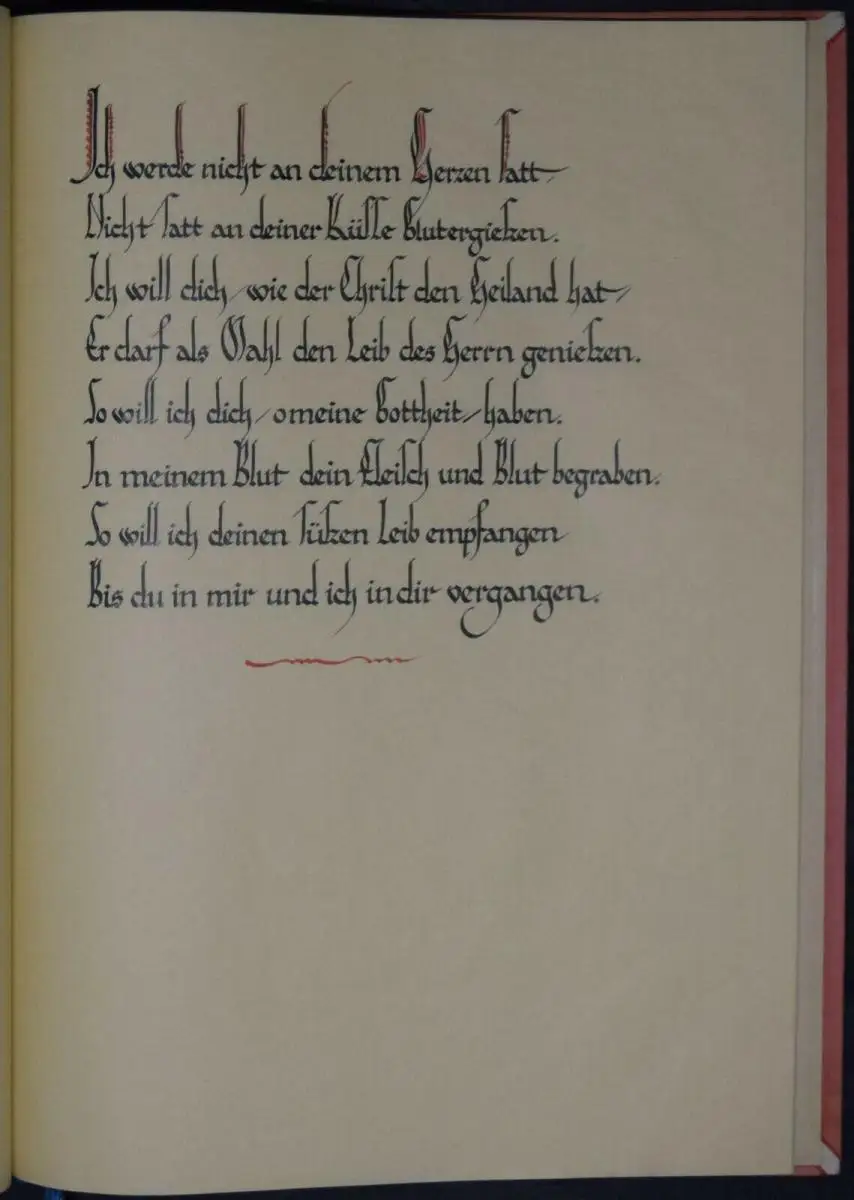 Ich werde nicht an deinem Herzen satt/
Nicht/satt an deiner Küsse Glutergießen.
Ich will dich/wie der Christ den Heiland hat/
Er darf als Mahl den Leib des Herrn genießen.
So will ich dich/o meine Gottheit/haben.
In meinem Blut dein Fleisch und Blut begraben.
So will ich deinen süßen Leib empfangen
Bis du in mir und ich in dir vergangen.